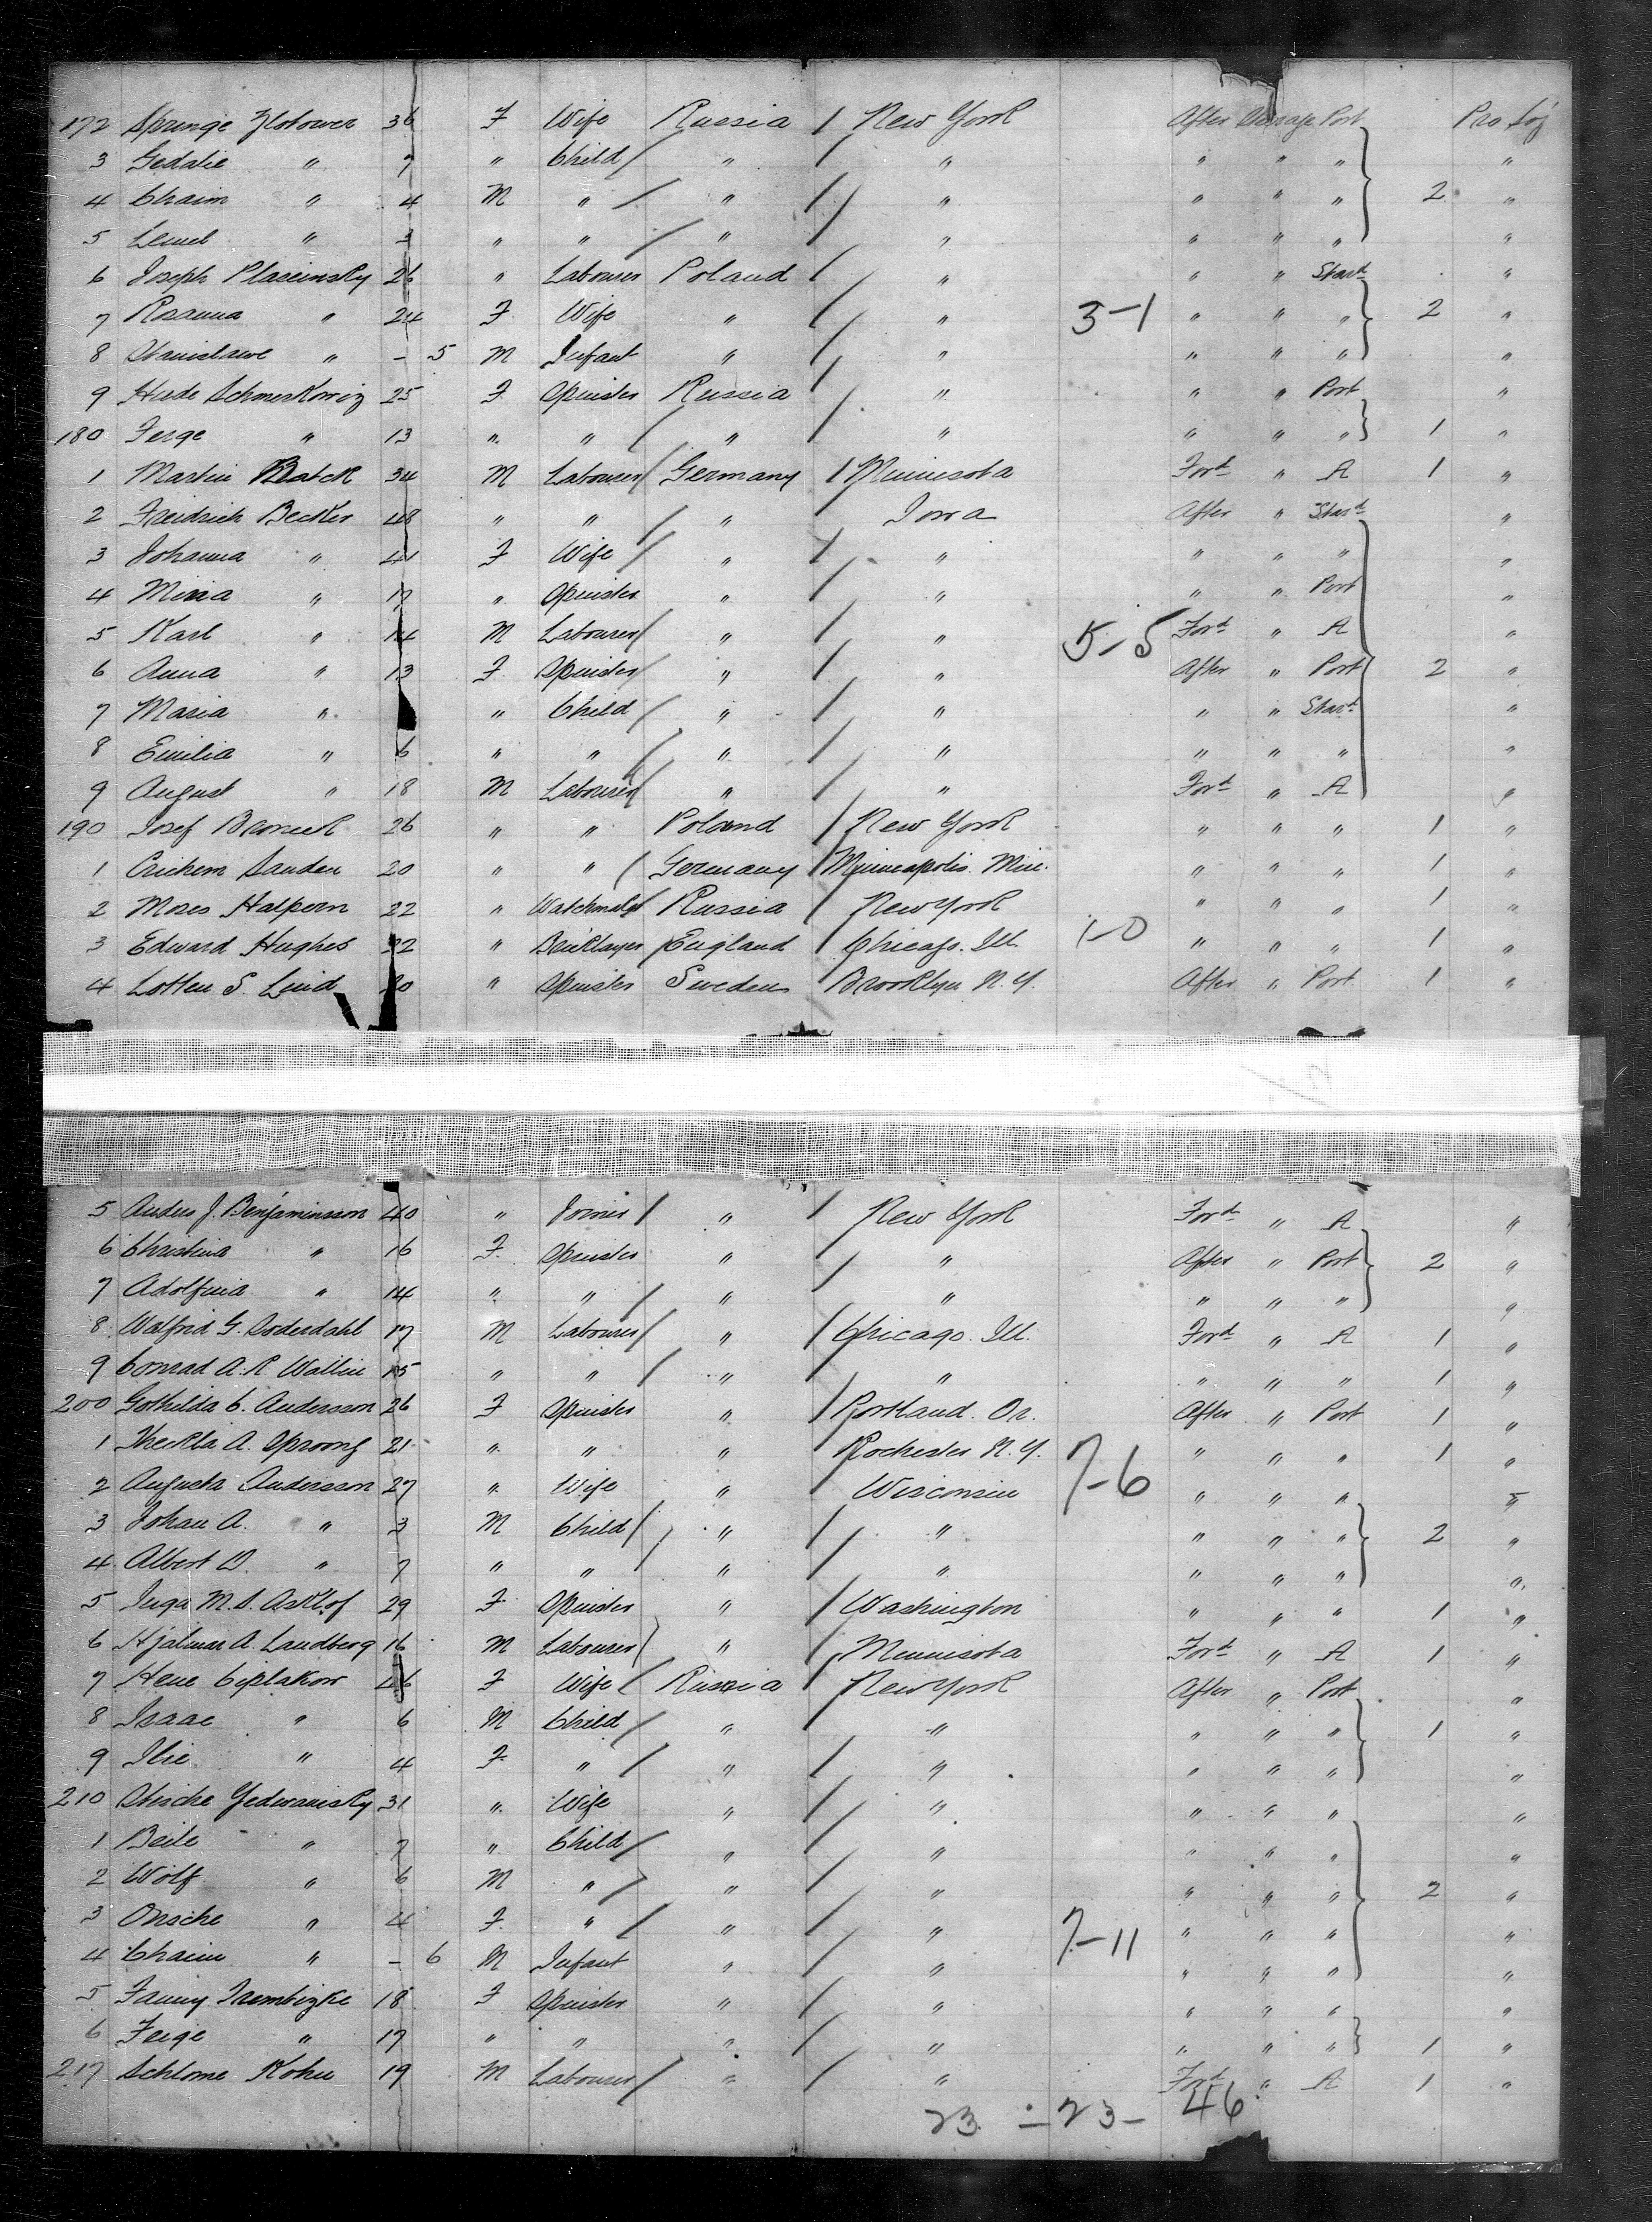 172 Springe Zlotower 36 F Wife Russia / New York After Steerage Port Pro Soj
3 Gedalie " 7 " Child / " / " " " " "
4 Chaim " 4 M " / " / " " " " 2 "
5 Lemel " 3 " " / " / " " " " "
6 Joseph Placcinsky 26 " Labourer Poland / " " " Starb "
7 Rosanna " 24 F Wife " / " 3-1 " " " 2 "
8 Stanislawe " - 5 M Infant " / " " " " "
9 Hade Schmerkowiz 25 F Spinster Russia / " " " Port "
180 Ferge " 13 " " / " / " " " " 1 "
1 Martin Blatck 34 M Labourer / Germany / Minnisota Ford " A 1 "
2 Freidrich Becker 48 " " / " Iowa After " Starb "
3 Johanna " 41 F Wife / " / " " " " "
4 Mina " 17 " Spinster " / " " " Port "
5 Karl " 14 M Labourer / " / " 5-5 Ford " A "
6 Anna " 13 F Spinster / " / " After " Port 2 "
7 Maria " " Child / " / " " " Starb "
8 Emilia " 6 " " / " / " " " " "
9 August " 18 M Labourer / " / " Ford " A "
190 Josef Broneck 26 " " Poland / New York " " " 1 "
1 Crichem Sanden 20 " " / Germany / Minneapolis. Min. " " " 1 "
2 Moses Halpern 22 " Watchmaker Russia / New York " " " 1 "
3 Edward Hughes 22 " Bricklayer / England / Chicago. Ill. 1-0 " " " 1 "
4 Lotten S. Lind 20 " Spinster Sweden Brooklyn N.Y. After " Port 1 "
5 Anders J. Benjaminsson 40 " Joiner / " / New York Ford " A "
6 Christina " 16 F Spinster " / " After " Port 2 "
7 Adolfina " 14 " " / " " " " " "
8 Walfrid G. Soderdahl 17 M Labourer / " / Chicago. Ill. Ford " A 1 "
9 Conrad A. R. Wallin 15 " " / " " " " " 1 "
200 Gothilda C. Andersson 26 F Spinster " / Portland. Or. After " Port 1 "
1 Theckla A. Sproong 21 " " " Rochester N.Y. 7-6 " " " 1 "
2 Augusta Andersson 27 " Wife " Wisconsin " " " "
3 Johan A. " 3 M Child / " / " " " " 2 "
4 Albert D. " 7 " " / " / " " " " "
5 Inga M. S. Asklof 29 F Spinster " / Washington " " " 1 "
6 Hjalmar A. Landberg 16 M Labourer " / Minnisota Ford " A 1 "
7 Hene Ciplakow 46 F Wife / Russia / New York After " Port "
8 Isaac " 6 M Child / " " " " " 1 "
9 Ilie " 4 F " / " / " " " " "
210 Stische Yedwanisky 31 " Wife " / " " " " "
1 Beile " 7 " Child / " / " " " " "
2 Wolf " 6 M " / " / " " " " 2 "
3 Onsche " 4 F " / " / " 7-11 " " " "
4 Chaim " - 6 M Infant " / " " " " "
5 Fanny Trembizke 18 F Spinster " / " " " " "
6 Feige " 17 " " " / " " " " 1 "
217 Schlome Kohn 19 M Labourer / " / " Ford " A 1 "
23 - 23 - 46